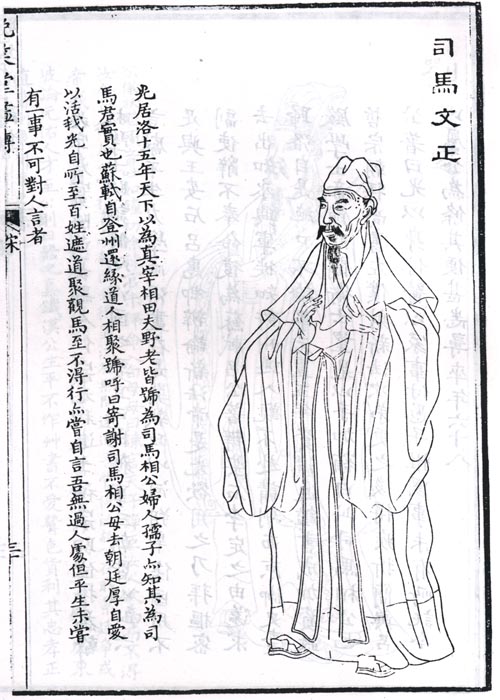 司馬文正
光居洛十五年天下以為真宰相田夫野老皆號為司馬相公婦人孺子亦知其為司
馬君實也蘇軾自登州還緣道人相聚號呼曰寄謝司馬相公毋去朝廷厚自愛
以活我光自所至百姓遮道聚觀馬至不淂行亦嘗自言吾無過人處但平生未嘗
有一事不可對人言者